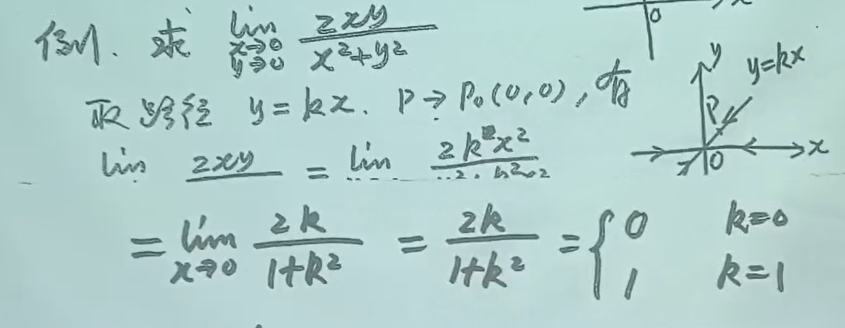 例1. 求 lim x→0 y→0 2xy / x²+y²
取路径 y=kx. P→P₀(0,0), 有
lim 2xy = lim 2kx²
= lim x→0 2k / 1+k² = 2k / 1+k² = { 0 k=0
1 k=1
0
y
y=kx
P
x
0